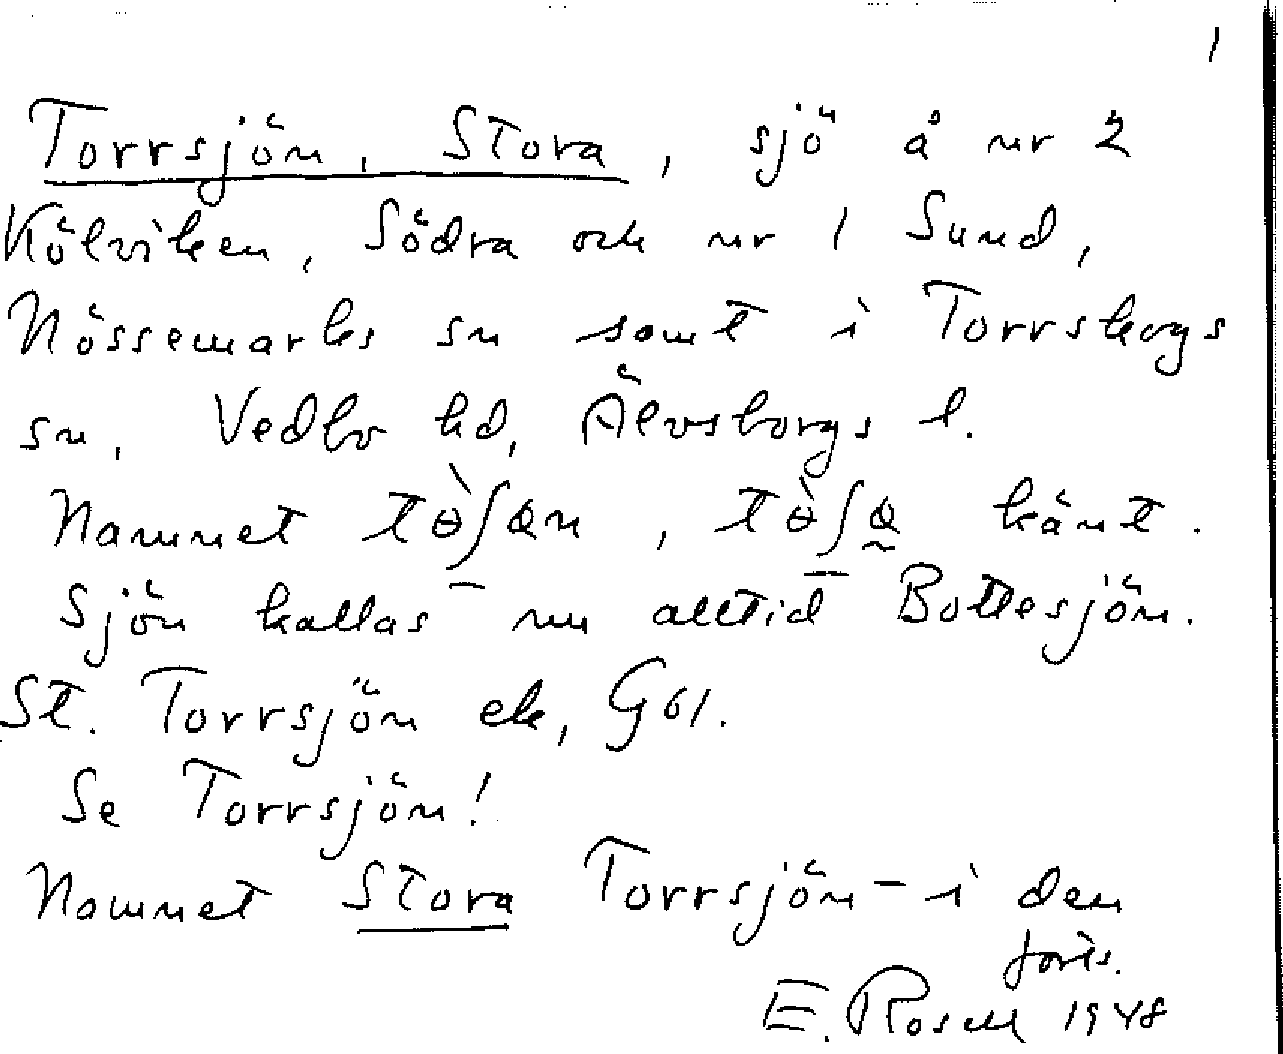 1
Torrsjön, Stora, sjö å nr 2
Kölviken, Södra och nr 1 Sund,
Nössemarks sn samt i Torrskogs
sn, Vedbo hd, Älvsborgs l.
Namnet tɵ̀ʃɷn, tɵ̀ʃɷ̰ känt.
Sjön kallas nu alltid Bottesjön.
St. Torrsjön ek, G61.
Se Torrsjön!
Namnet Stora Torrsjön – i den
forts.
E. Rosell 1948